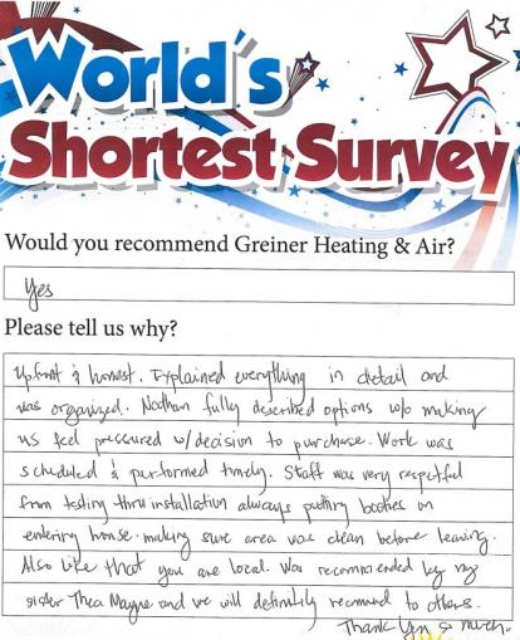 World's
Shortest Survey
Would you recommend Greiner Heating & Air?
Yes
Please tell us why?
Upfront & honest. Explained everything in detail and
was organized. Nathan fully described options w/o making
us feel pressured w/decision to purchase. Work was
scheduled & performed timely. Staff was very respectful
from testing thru installation always putting booties on
entering house. making sure area was clean before leaving.
Also like that you are local. Was recommended by my
sister Thea Mayne and we will definitely recommend to others.
Thank you so much.